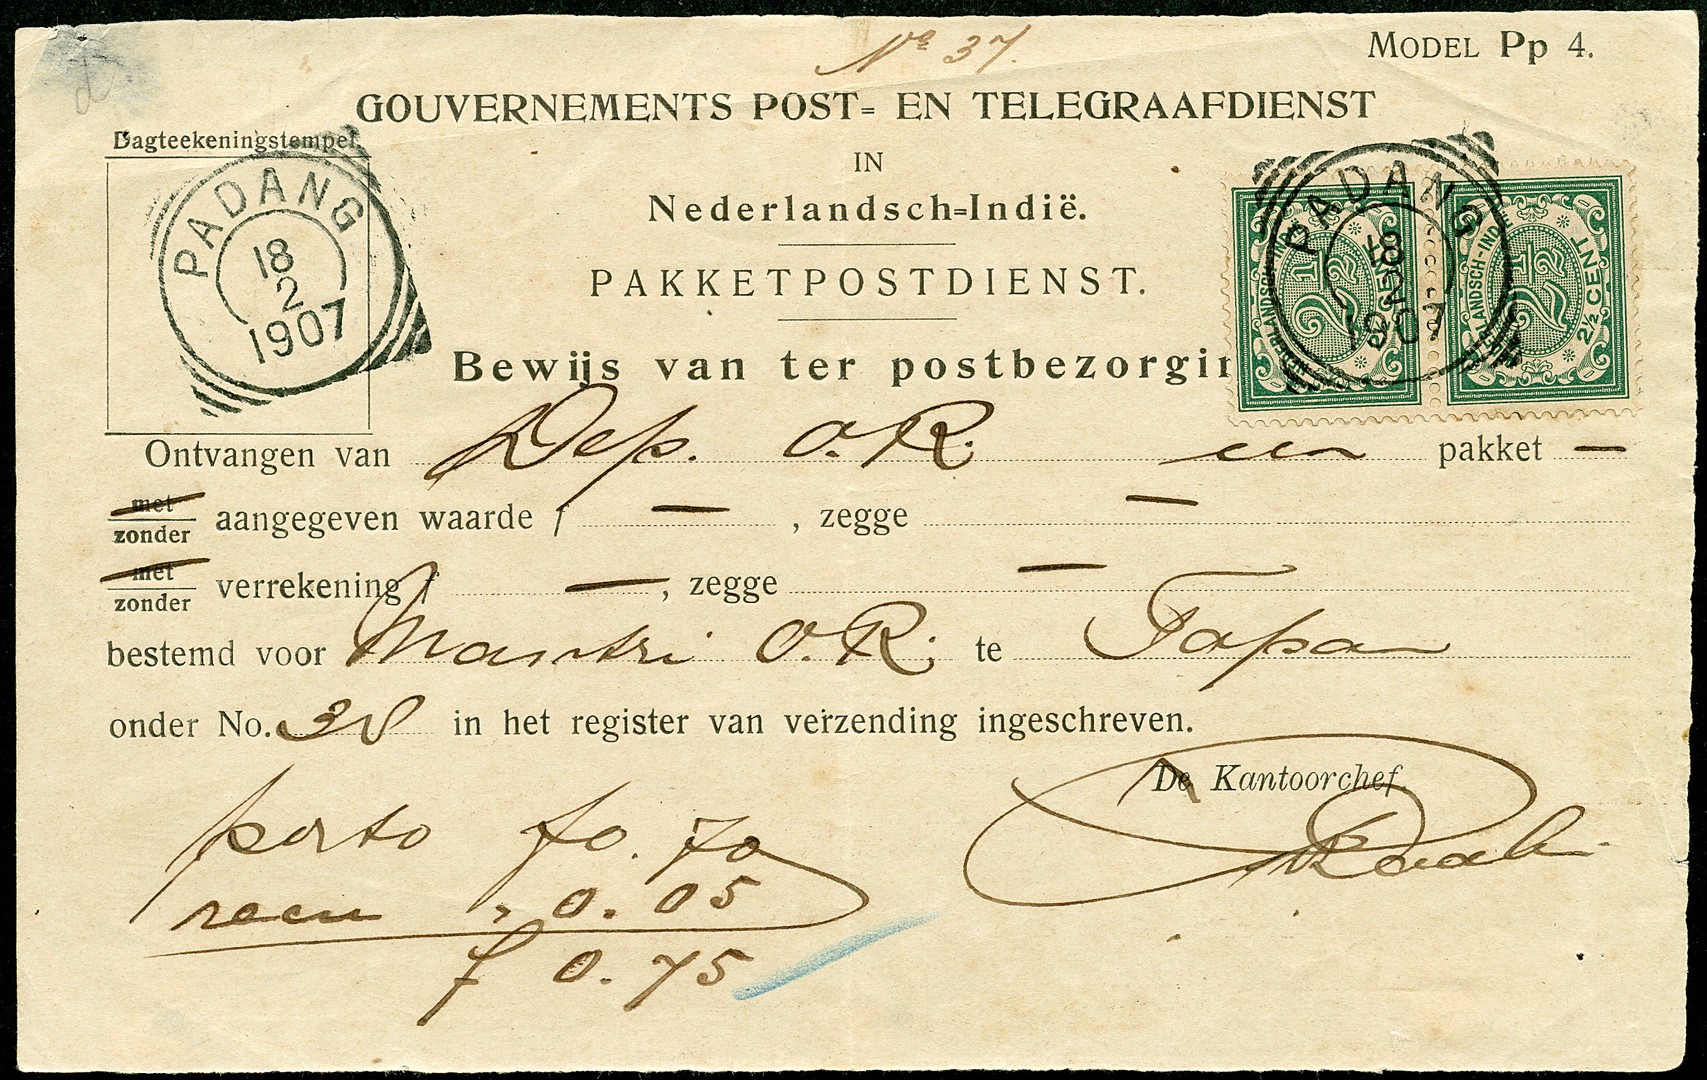 No 37.
MODEL Pp 4.
GOUVERNEMENTS POST= EN TELEGRAAFDIENST
IN
Nederlandsch=Indië.
PAKKETPOSTDIENST.
Bewijs van ter postbezorgin
Dagteekeningstempel.
PADANG
18
2
1907
NEDERLANDSCH-INDIË
2½
2½ CENT
NEDERLANDSCH-INDIË
2½
2½ CENT
PADANG
18
2
1907
Ontvangen van Dep. O.R. een pakket —
met
zonder aangegeven waarde f — , zegge —
met
zonder verrekening f — , zegge —
bestemd voor Mantri O.R. te Tapan
onder No. 38 in het register van verzending ingeschreven.
De Kantoorchef.
porto f0.70
recu " 0.05
f 0.75